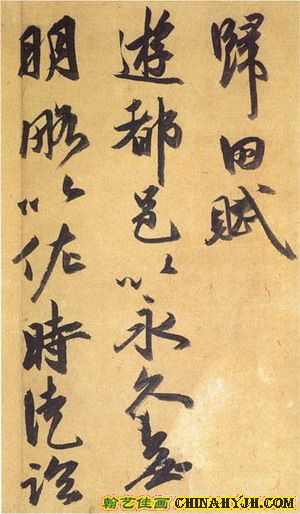 歸田賦
遊都邑以永久無
明略以佐時徒臨
翰艺佳画 CHINAHYJH.COM